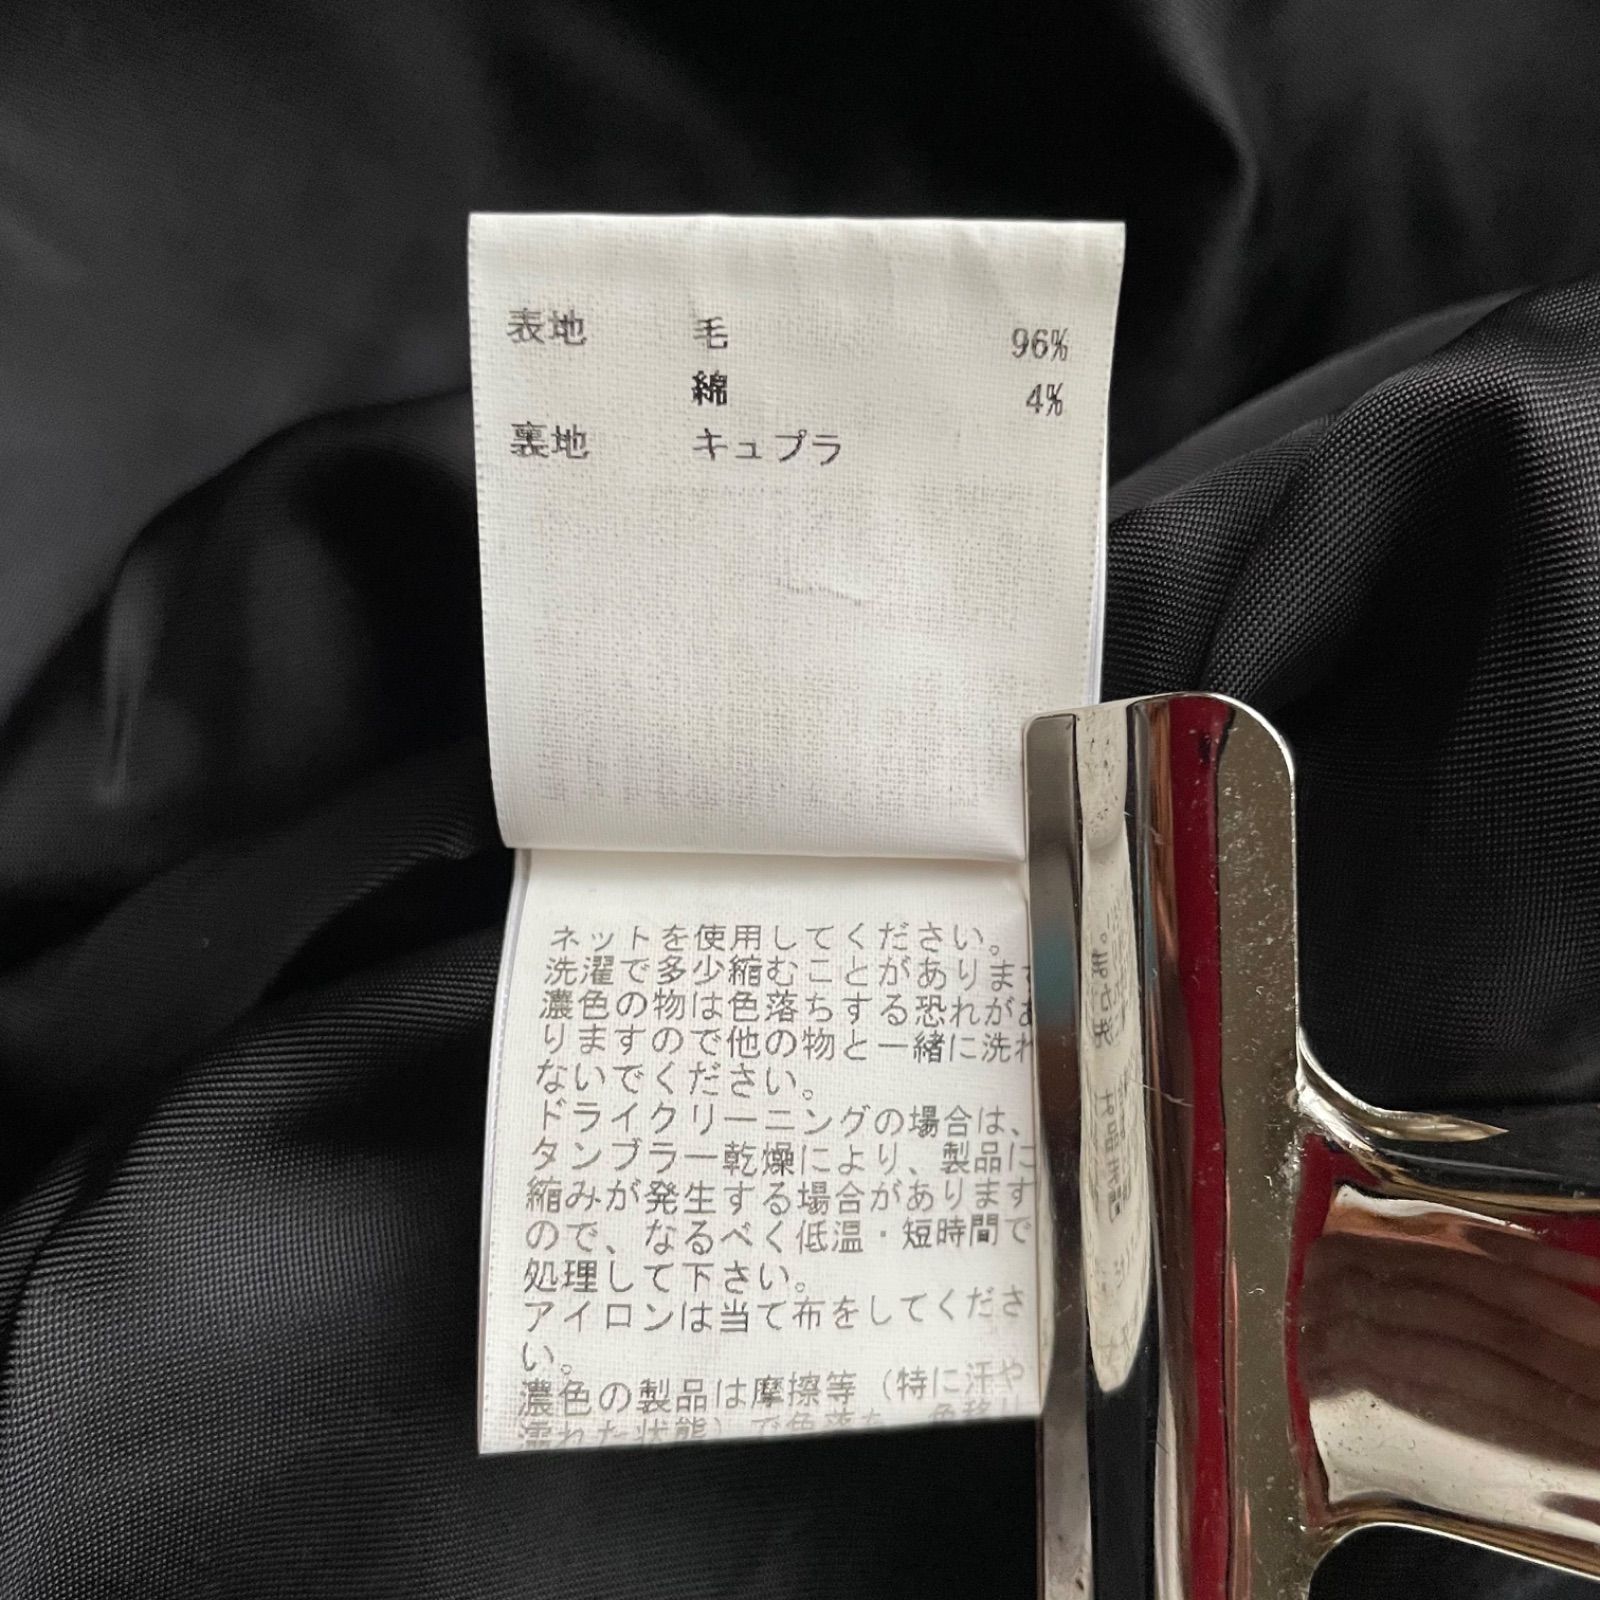 表地 毛 96%
綿 4%
裏地 キュプラ
ネットを使用してください。
洗濯で多少縮むことがあります
濃色の物は色落ちする恐れがあ
りますので他の物と一緒に洗わ
ないでください。
ドライクリーニングの場合は、
タンブラー乾燥により、製品に
縮みが発生する場合があります
ので、なるべく低温・短時間で
処理して下さい。
アイロンは当て布をしてくださ
い。
濃色の製品は摩擦等（特に汗や
濡れた状態）で色落ち、色移り